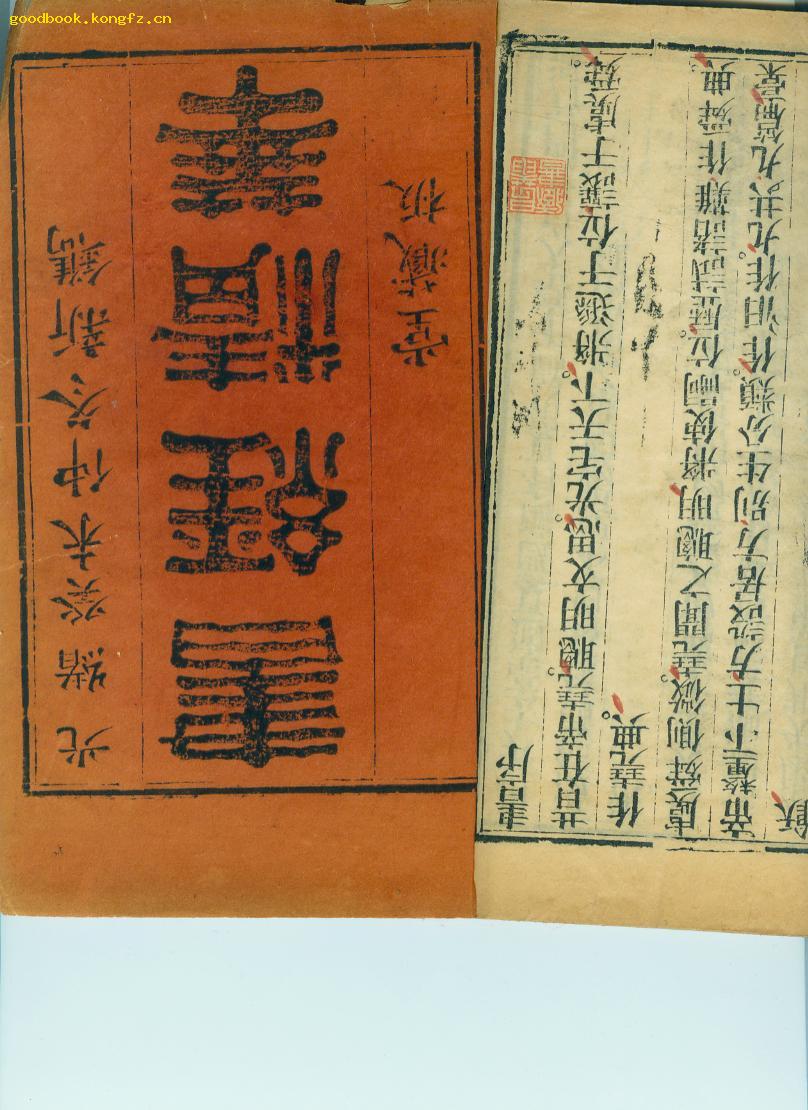 goodbook.kongfz.cn
光緒癸未仲冬新鐫
書經精華
堂藏板
書序
昔在帝堯。聰明文思。光宅天下。將遜于位讓于虞舜。
作堯典。
虞舜側微。堯聞之聰明將使嗣位。歷試諸難作舜典。
帝釐下土方設居方別生分類。作汩作。九共九篇稾
飫